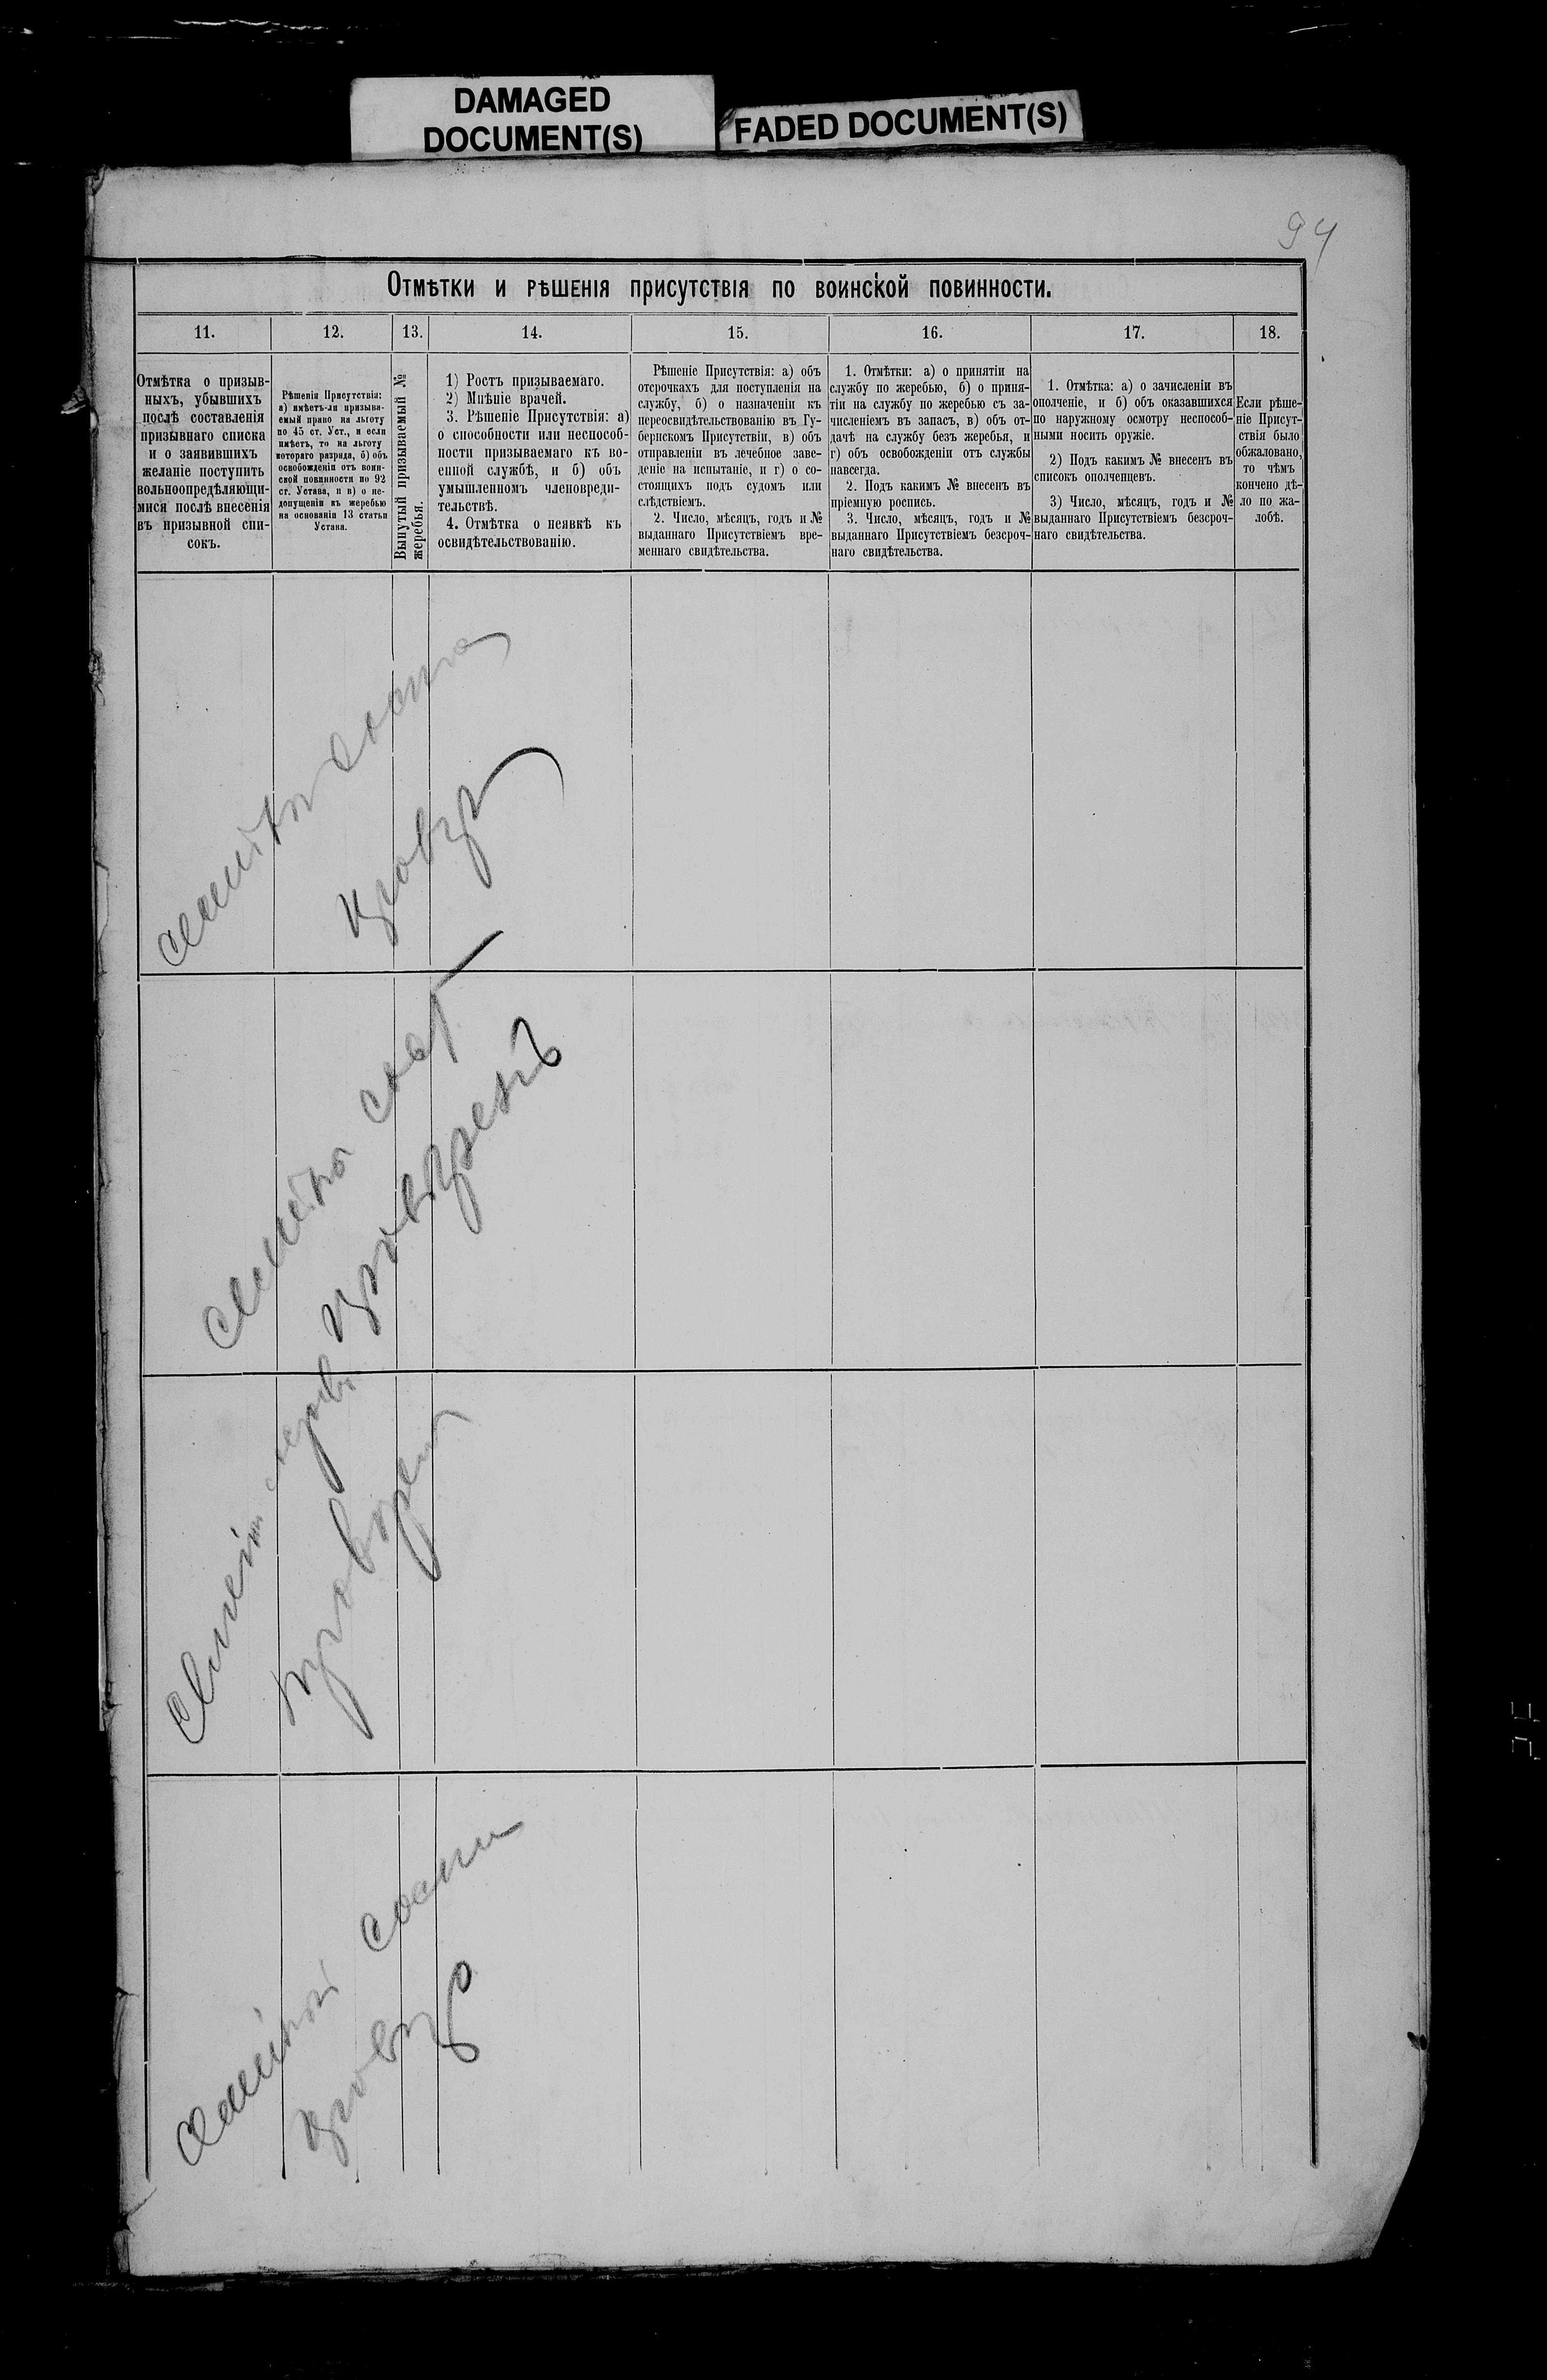 DAMAGED
DOCUMENT(S)
FADED DOCUMENT(S)
94
Отмѣтки и рѣшенія присутствія по воинской повинности.
11.
12.
13.
14.
15.
16.
17.
18.
Отмѣтка о призыв-
ныхъ, убывшихъ
послѣ составленія
призывнаго списка
и о заявившихъ
желаніе поступить
вольноопредѣляющи-
мися послѣ внесенія
въ призывной спи-
сокъ.
Рѣшенія Присутствія:
а) имѣетъ-ли призыва-
емый право на льготу
по 45 ст. Уст., и если
имѣетъ, то на льготу
котораго разряда, б) объ
освобожденіи отъ воин-
ской повинности по 92
ст. Устава, и в) о не-
допущеніи къ жеребью
на основаніи 13 статьи
Устава.
Вынутый призываемый №
жеребья.
1) Ростъ призываемаго.
2) Мнѣніе врачей.
3. Рѣшеніе Присутствія: а)
о способности или неспособ-
ности призываемаго къ во-
енной службѣ, и б) объ
умышленномъ членовреди-
тельствѣ.
4. Отмѣтка о неявкѣ къ
освидѣтельствованію.
Рѣшеніе Присутствія: а) объ
отсрочкахъ для поступленія на
службу, б) о назначеніи къ
переосвидѣтельствованію въ Гу-
бернскомъ Присутствіи, в) объ
отправленіи въ лечебное заве-
деніе на испытаніе, и г) о со-
стоящихъ подъ судомъ или
слѣдствіемъ.
2. Число, мѣсяцъ, годъ и №
выданнаго Присутствіемъ вре-
меннаго свидѣтельства.
1. Отмѣтки: а) о принятіи на
службу по жеребью, б) о приня-
тіи на службу по жеребью съ за-
численіемъ въ запасъ, в) объ от-
дачѣ на службу безъ жеребья, и
г) объ освобожденіи отъ службы
навсегда.
2. Подъ какимъ № внесенъ въ
пріемную роспись.
3. Число, мѣсяцъ, годъ и №
выданнаго Присутствіемъ безсроч-
наго свидѣтельства.
1. Отмѣтка: а) о зачисленіи въ
ополченіе, и б) объ оказавшихся
по наружному осмотру неспособ-
ными носить оружіе.
2) Подъ какимъ № внесенъ въ
списокъ ополченцевъ.
3) Число, мѣсяцъ, годъ и №
выданнаго Присутствіемъ безсроч-
наго свидѣтельства.
Если рѣше-
ніе Присут-
ствія было
обжаловано,
то чѣмъ
кончено дѣ-
ло по жа-
лобѣ.
провѣр
провѣренъ
провѣрен
провѣр